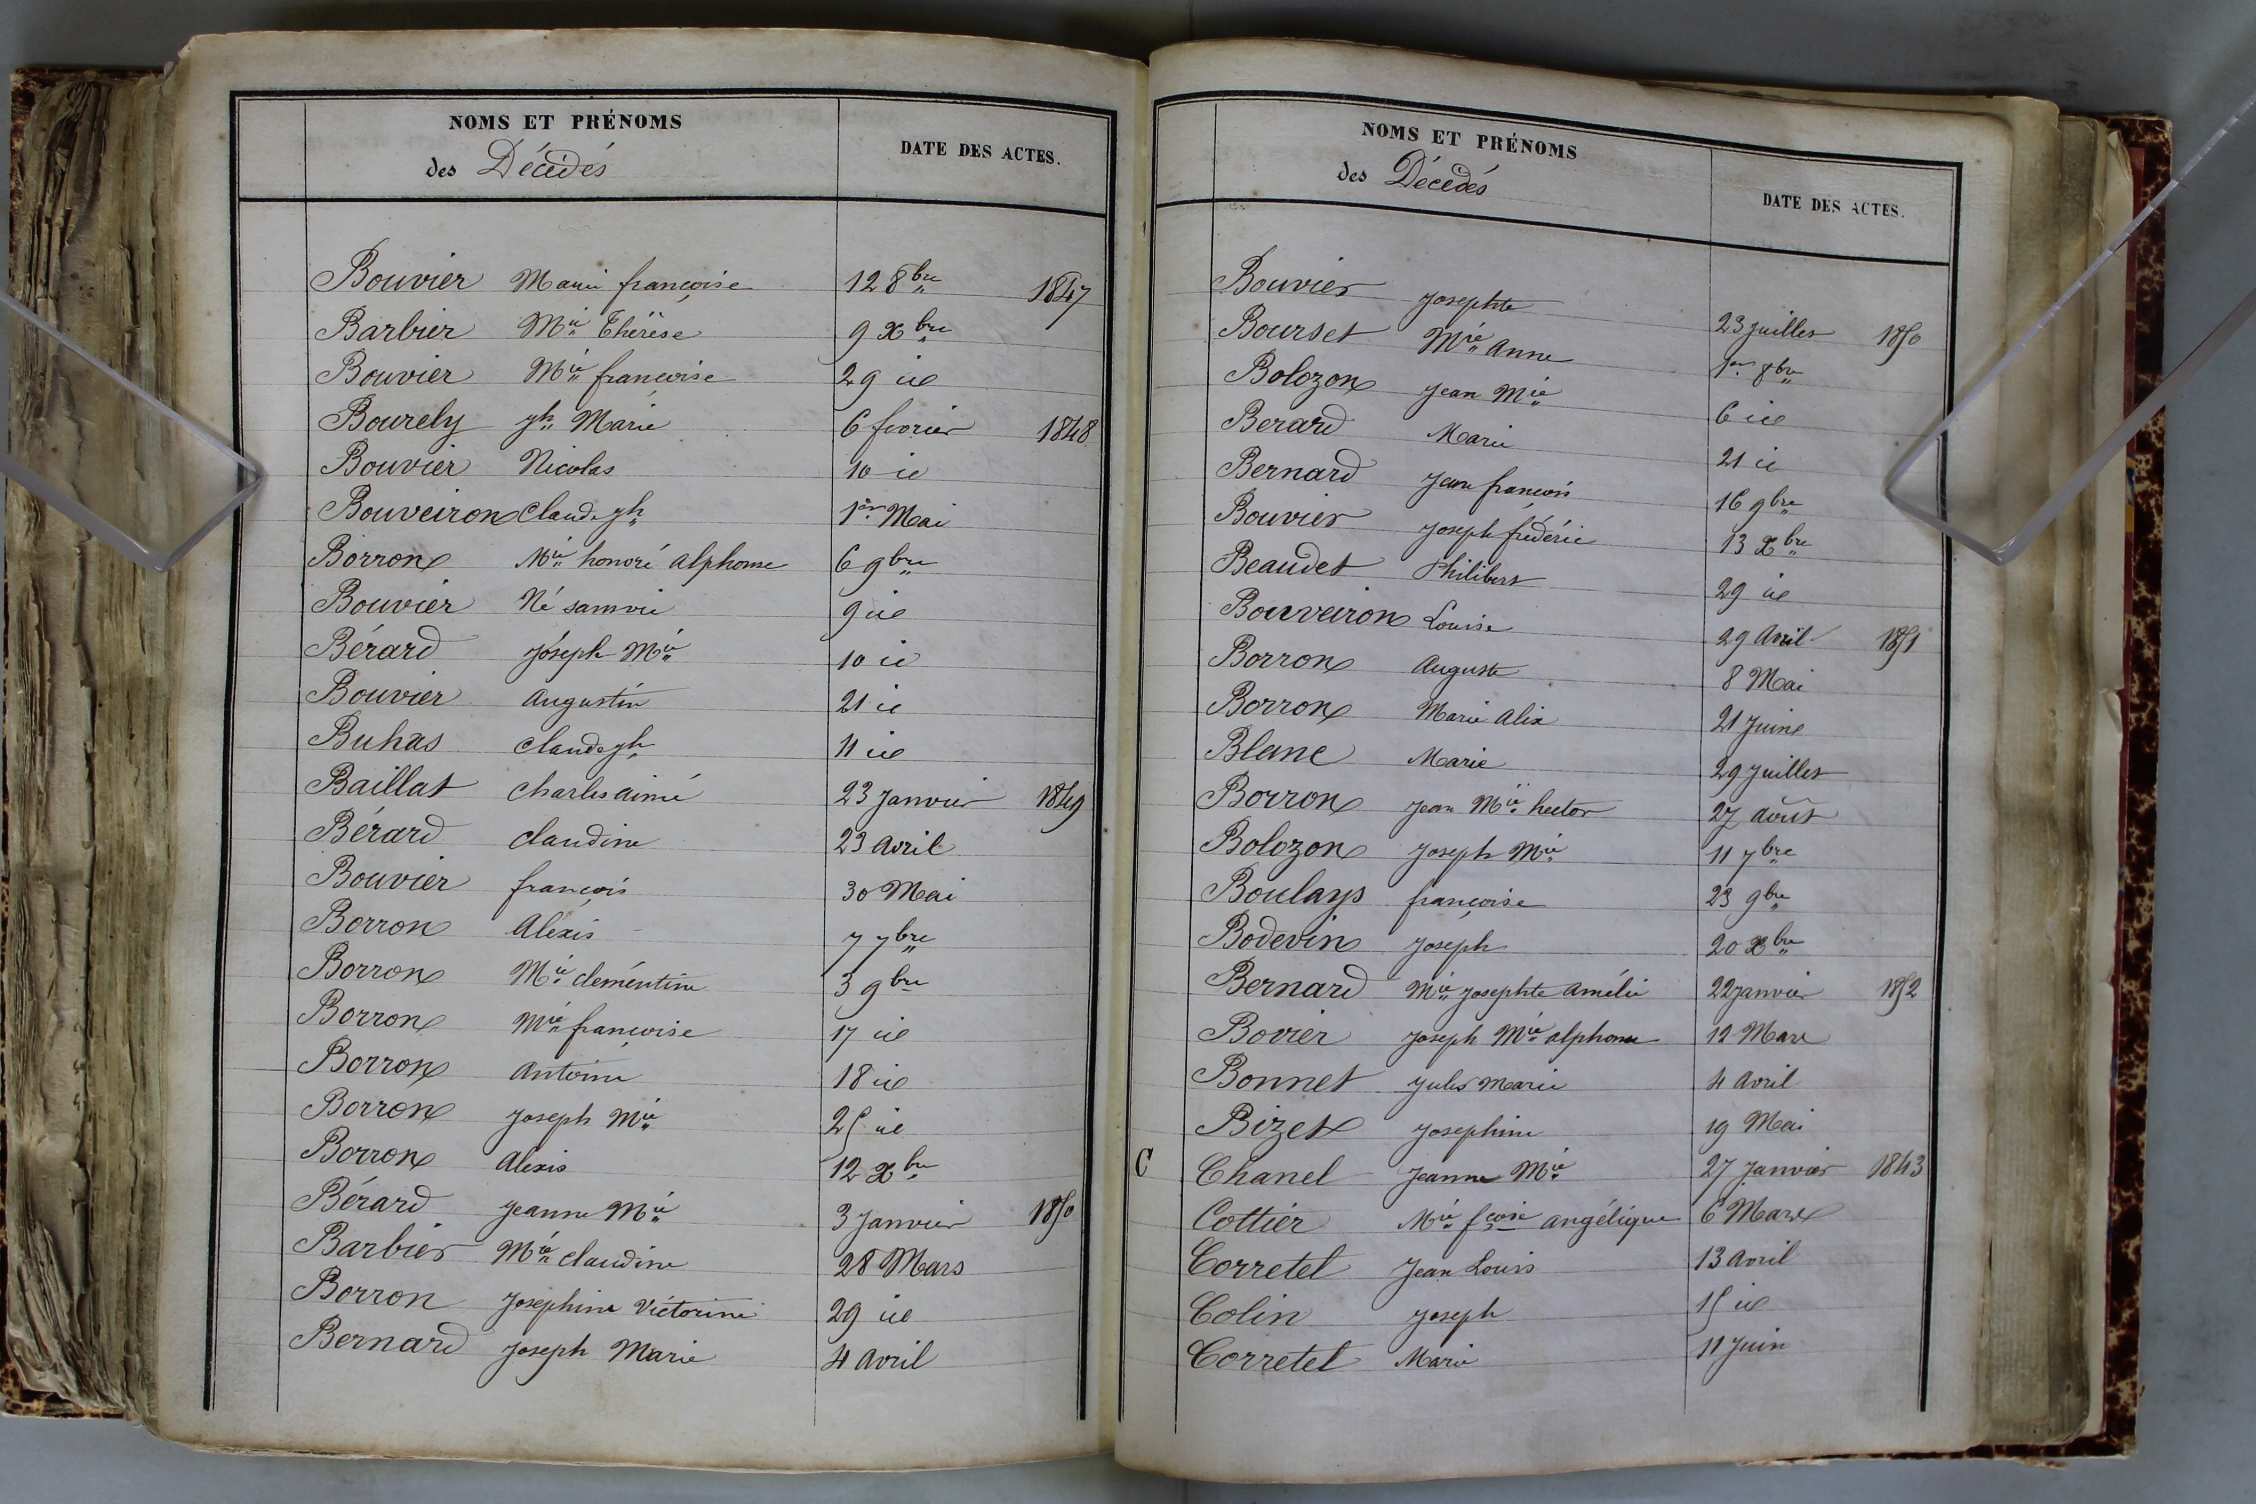 NOMS ET PRÉNOMS
des Décédés
DATE DES ACTES.
Bouvier Marie françoise 12 8bre 1847
Barbier Mie Thérèse 9 Xbre
Bouvier Mie françoise 29 id
Bourely jh Marie 6 fevrier 1848
Bouvier Nicolas 10 id
Bouveiron Claude jh 1er Mai
Borron Mie honoré alphonse 6 9bre
Bouvier Né sans vie 9 id
Bérard Joseph Mie 10 id
Bouvier augustin 21 id
Buhas Claude jh 11 id
Baillat Charles aimé 23 Janvier 1849
Bérard Claudine 23 avril
Bouvier françois 30 Mai
Borron Alexis 7 7bre
Borron Mie clémentine 3 9bre
Borron Mie françoise 17 id
Borron Antoine 18 id
Borron Joseph Mie 25 id
Borron Alexis 12 Xbre
Bérard Jeanne Mie 3 Janvier 1850
Barbier Mie Claudine 28 Mars
Borron Josephine Victorine 29 id
Bernard Joseph Marie 4 avril
NOMS ET PRÉNOMS
des Décédés
DATE DES ACTES.
Bouvier Josephte 23 Juillet 1850
Bourset Mie Anne 1er 8bre
Bolozon Jean Mie 6 id
Berard Marie 21 id
Bernard Jean françois 16 9bre
Bouvier Joseph frédéric 13 Xbre
Beaudet Philibert 29 id
Bouveiron Louise 29 Avril 1851
Borron Auguste 8 Mai
Borron Marie Alix 21 Juin
Blanc Marie 29 Juillet
Borron Jean Mie hector 27 août
Bolozon Joseph Mie 11 7bre
Boulays françoise 23 9bre
Bodevin Joseph 20 Xbre
Bernard Mie Josephte Amélie 22 Janvier 1852
Bovier Joseph Mie alphonse 12 Mars
Bonnet Jules Marie 4 avril
Bizet Josephine 19 Mai
C Chanel Jeanne Mie 27 Janvier 1843
Cottier Mie fcoise angélique 6 Mars
Corretel Jean Louis 13 avril
Colin Joseph 15 id
Corretel Marie 11 Juin